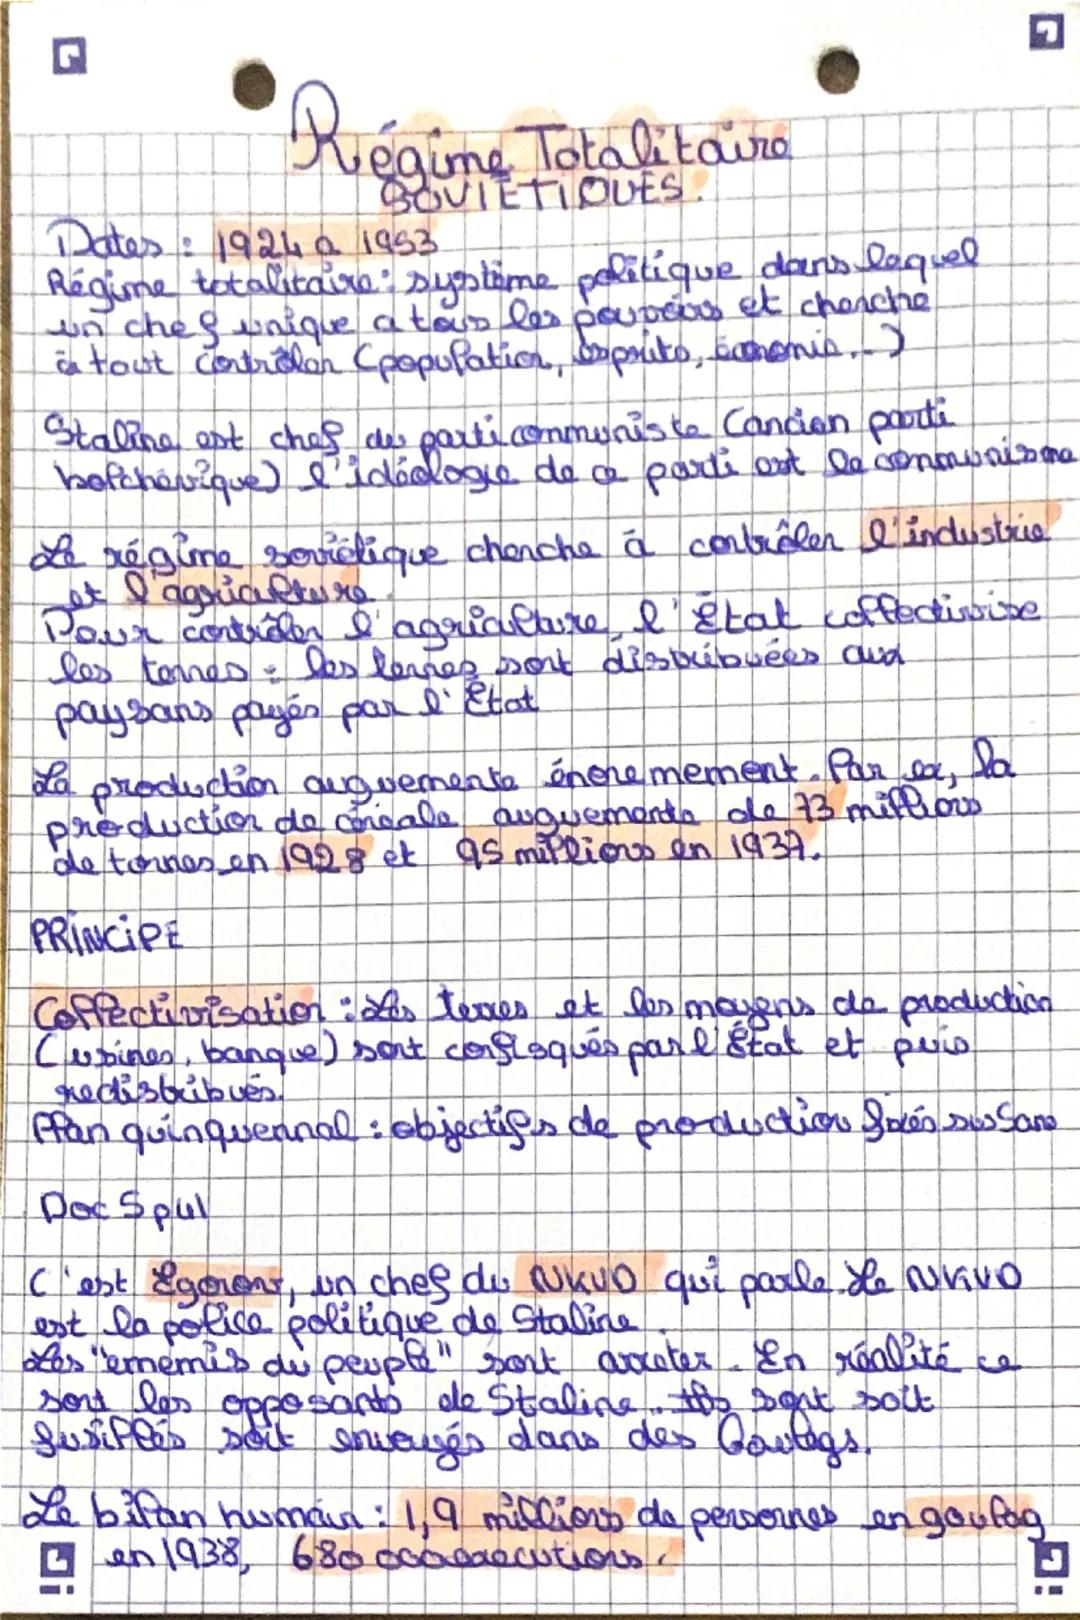 Régime Totalitaire
SOVIÉTIQUES.
Dates : 1924 a 1953
Régime totalitaire : système politique dans lequel
un chef unique a tous les pouvoirs et cherche
à tout contrôler (population, esprits, économie...)
Staline est chef du parti communiste (ancien parti
bolchévique) l'idéologie de ce parti est le communisme
Le régime soviétique cherche à contrôler l'industrie
et l'agriculture.
Pour contrôler l'agriculture, l'État collectivise
les terres : les terres sont distribuées aux
paysans payés par l'État
La production auguemente énoremement. Par ex, la
production de céréale auguemente de 73 millions
de tonnes en 1928 et 95 millions en 1937.
PRINCIPE
Collectivisation : Les terres et les moyens de production
(usines, banque) sont confisqués par l'État et puis
redistribués.
Plan quinquennal : objectifs de production fixés sur 5ans
Doc 5 pul
C'est Egorov, un chef du NKVD qui parle. Le NKVD
est la police politique de Staline.
Les "ennemis du peuple" sont arreter. En réalité ce
sont les opposants de Staline. Ils sont soit
fusillés soit envoyés dans des Goulags.
Le bilan humain : 1,9 millions de personnes en goulag
en 1938, 680 000 executions.